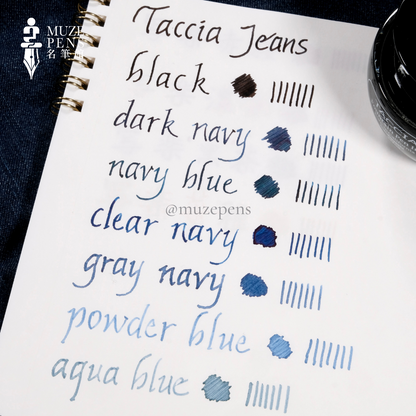 MUZE
PENS
名筆
Taccia Jeans
black
dark navy
navy blue
@muzepens
clear navy
gray navy
powder blue
aqua blue